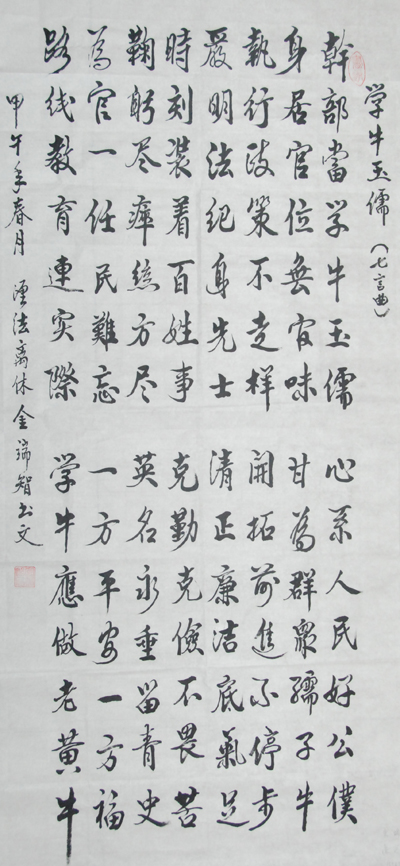 学牛玉儒（七言曲）
幹部當学牛玉儒 心系人民好公僕
身居官位無官味 甘為群衆孺子牛
執行政策不走样 開拓前進不停步
嚴明法纪身先士 清正廉洁底氣足
時刻装着百姓事 克勤克儉不畏苦
鞠躬尽瘁絲方尽 英名永垂留青史
為官一任民難忘 一方平安一方福
路线教育連实際 学牛應做老黄牛
甲午年春月 法离休金瑞智书文